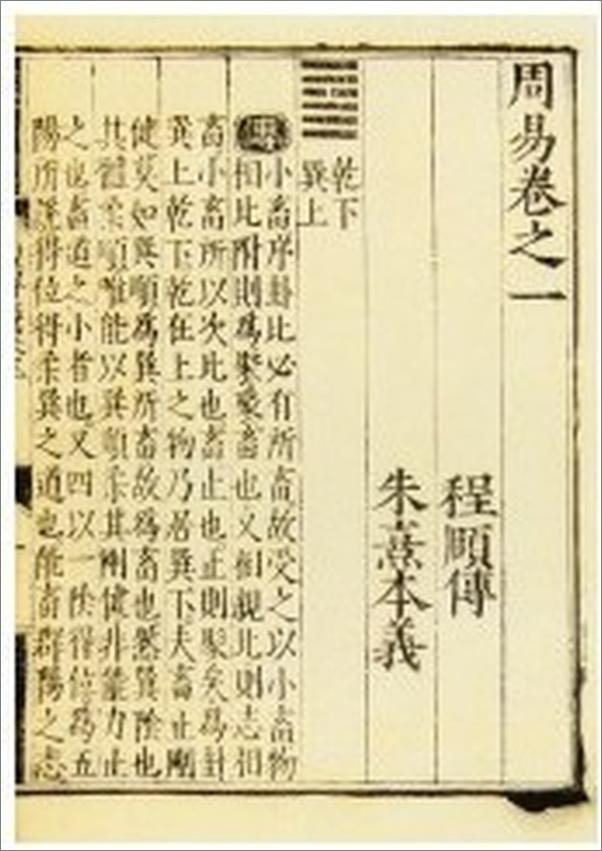 周易卷之一
程頤傳
朱熹本義
乾下
巽上
傳
小畜序卦比必有所畜故受之以小畜物
相比附則爲聚聚畜也又相親比則志相
畜小畜所以次比也畜止也止則聚矣爲卦
巽上乾下乾在上之物乃居巽下夫畜止剛
健莫如巽順爲巽所畜故爲畜也然巽陰也
其體柔順唯能以巽順柔其剛健非能力止
之也畜道之小者也又四以一陰得位爲五
陽所說得位得柔巽之道也能畜群陽之志